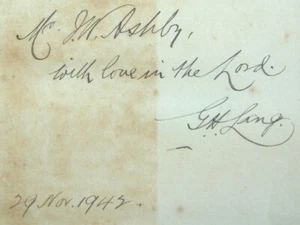 Mr. J.W. Ashby,
with love in the Lord.
G.H. Lang.
29 Nov. 1942.